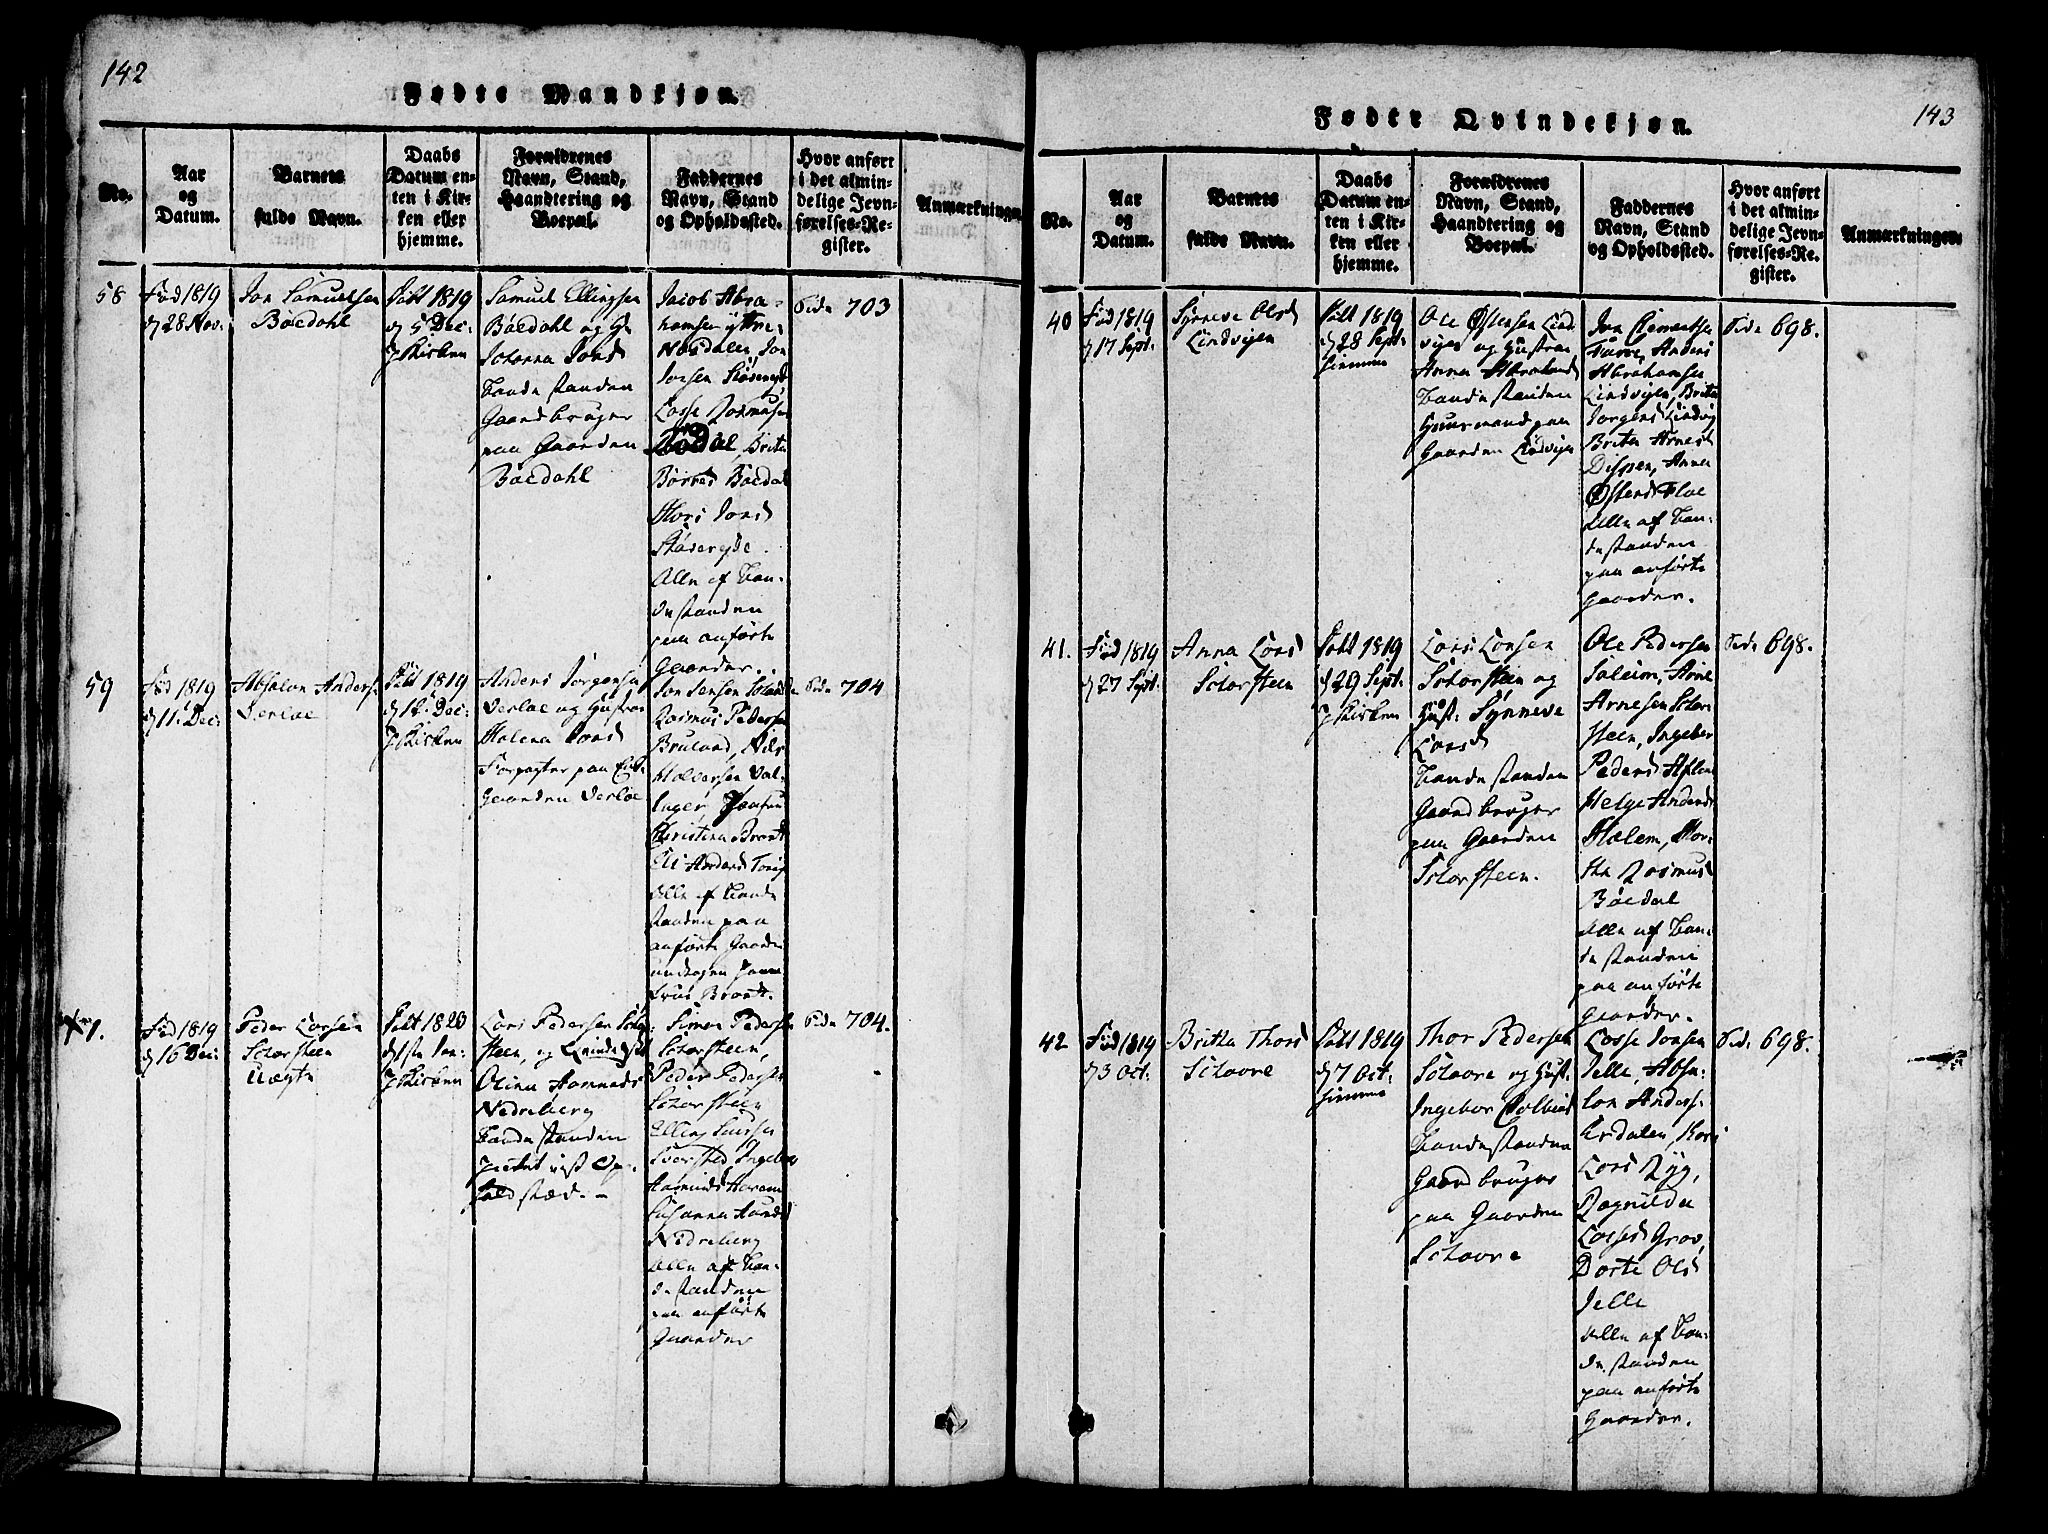 142
Fødte Mandkjøn.
No.
Aar
og
Datum.
Barnets
fulde Navn.
Daabs
Datum en-
ten i Kir-
ken eller
hjemme.
Forældrenes
Navn, Stand,
Haandtering og
Boepæl.
Faddernes
Navn, Stand
og Opholdssted.
Hvor anført
i det almin-
delige Jevn-
førelses-Re-
gister.
Anmærkninger
58
Fød 1819
d 28 Nov:
Jon Samuelsen
Böedahl
Döbt 1819
d 5 Dec:
J Kirken
Samuel Ellingsen
Böedahl og
Johanna Jonsd
Bondestanden
Gaardbruger
paa Gaarden
Böedahl
Jacob Abra-
hamsen yttre
Nosdalen, Jon
Lasse Rasmusen
Brita
Börres Böedal
Jonsd
Alle af Bon-
destanden
paa anförte
Gaarder.
Side 703
59
Fød 1819
d 11. Dec:
Absalon Anders
Verløe
Döbt 1819
d 12. Dec:
J Kirken
Anders Jörgensen
Verloe og Hustroe
Helena Jonsd
Forpagter paa
Gaarden Verloe
Jon Jensen
Rasmus Pedersen
Bruland, Nils
Halversen
Inger
Christina Brandt
Alle af Bonde
standen paa
anförte Gaarde
undtagen
Brandt.
Side 704
1.
Fød 1819
d 16 Dec:
Peder Larsen
Storsteen
Uægte
Döbt 1820
d 1ste Jan:
J Kirken
Lars Pedersen Stor-
steen, og Qvinde
Olina
Nedreberg
Bondestanden
Simon Pedersen
Storsteen,
Peder Peders
Storsteen
Elling
Svarsted, Ingebor
Susanna
Nedreberg
Alle af Bon-
destanden
paa anförte
Gaarder
Side 704.
143
Fødte Qvindekjøn.
No.
Aar
og
Datum.
Barnets
fulde Navn.
Daabs
Datum en-
ten i Kir-
ken eller
hjemme.
Forældrenes
Navn, Stand,
Haandtering og
Boepæl.
Faddernes
Navn, Stand
og Opholdssted.
Hvor anført
i det almin-
delige Jevn-
førelses-Re-
gister.
Anmærkninger.
40
Fød 1819
d 17 Sept:
Synneve Olsd
Lindvigen
Döbt 1819
d 28 Sept:
hiemme
Ole Östensen Lind
vigen og Hustroe
Anna Abrahamsd
Bondestanden
Huusmand paa
Gaarden Lindvigen
Jon Clementsen
Anders
Abrahamsen
Lindvigen, Brita
Jorgensd Lindvig
Brita Arnesd
Anna
Östensd Floe
Alle af Bon-
destanden
paa anförte
Gaarder.
Side 698.
41.
Fød 1819
d 27 Sept:
Anna Larsd
Storsteen
Döbt 1819
d 29 Sept:
J Kirken
Lars Larsen
Storsteen og
Hust: Synneve
Larsd
Bondestanden
Gaardbruger
paa Gaarden
Storsteen.
Ole Pedersen
Soleim, Arne
Arnesen Stor-
steen, Ingebor
Pedersd
Helge Andersd
Halem, Mar-
tha Rasmusd
Böedal
Alle af Bon-
destanden
paa anförte
Gaarder.
Side 698.
42
Fød 1819
d 3 Oct:
Britha Thorsd
Stavre
Döbt 1819
d 7 Oct:
hiemme
Thor Pedersen
Stavre og Hust:
Ingebor Colbeinsd
Bondestanden
Gaardbruger
paa Gaarden
Stavre
Lasse Jonsen
Jelle, Absa-
lon Anders
Erdalen Kari
Larsd Ryg,
Ragnilda
Lassesd Grov,
Dorte Olsd
Jelle
Alle af Bon-
destanden
paa anförte
Gaarder.
Side 698.